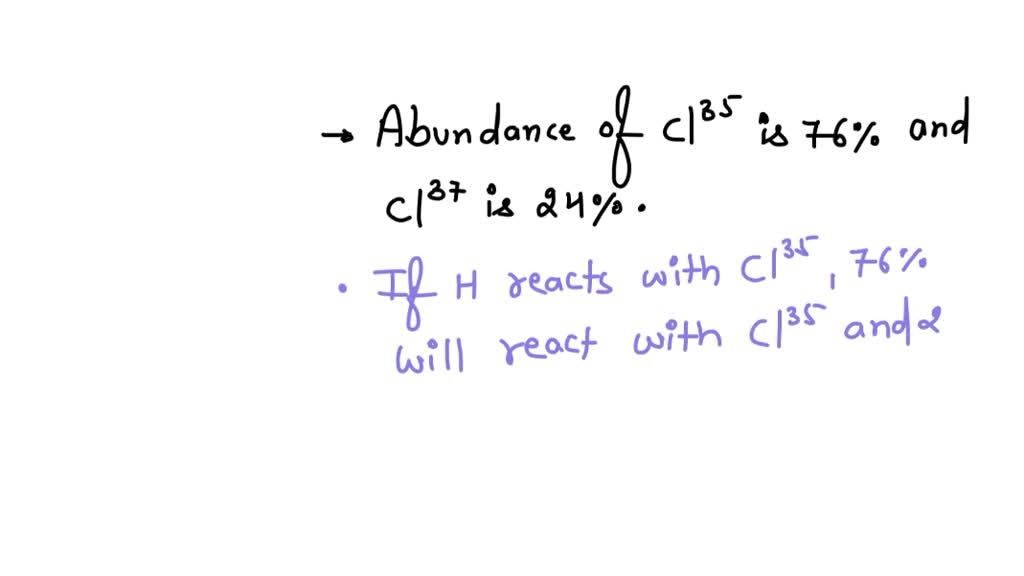 → Abundance of Cl³⁵ is 76% and
Cl³⁷ is 24%.
• If H reacts with Cl³⁵, 76%
will react with Cl³⁵ and 2